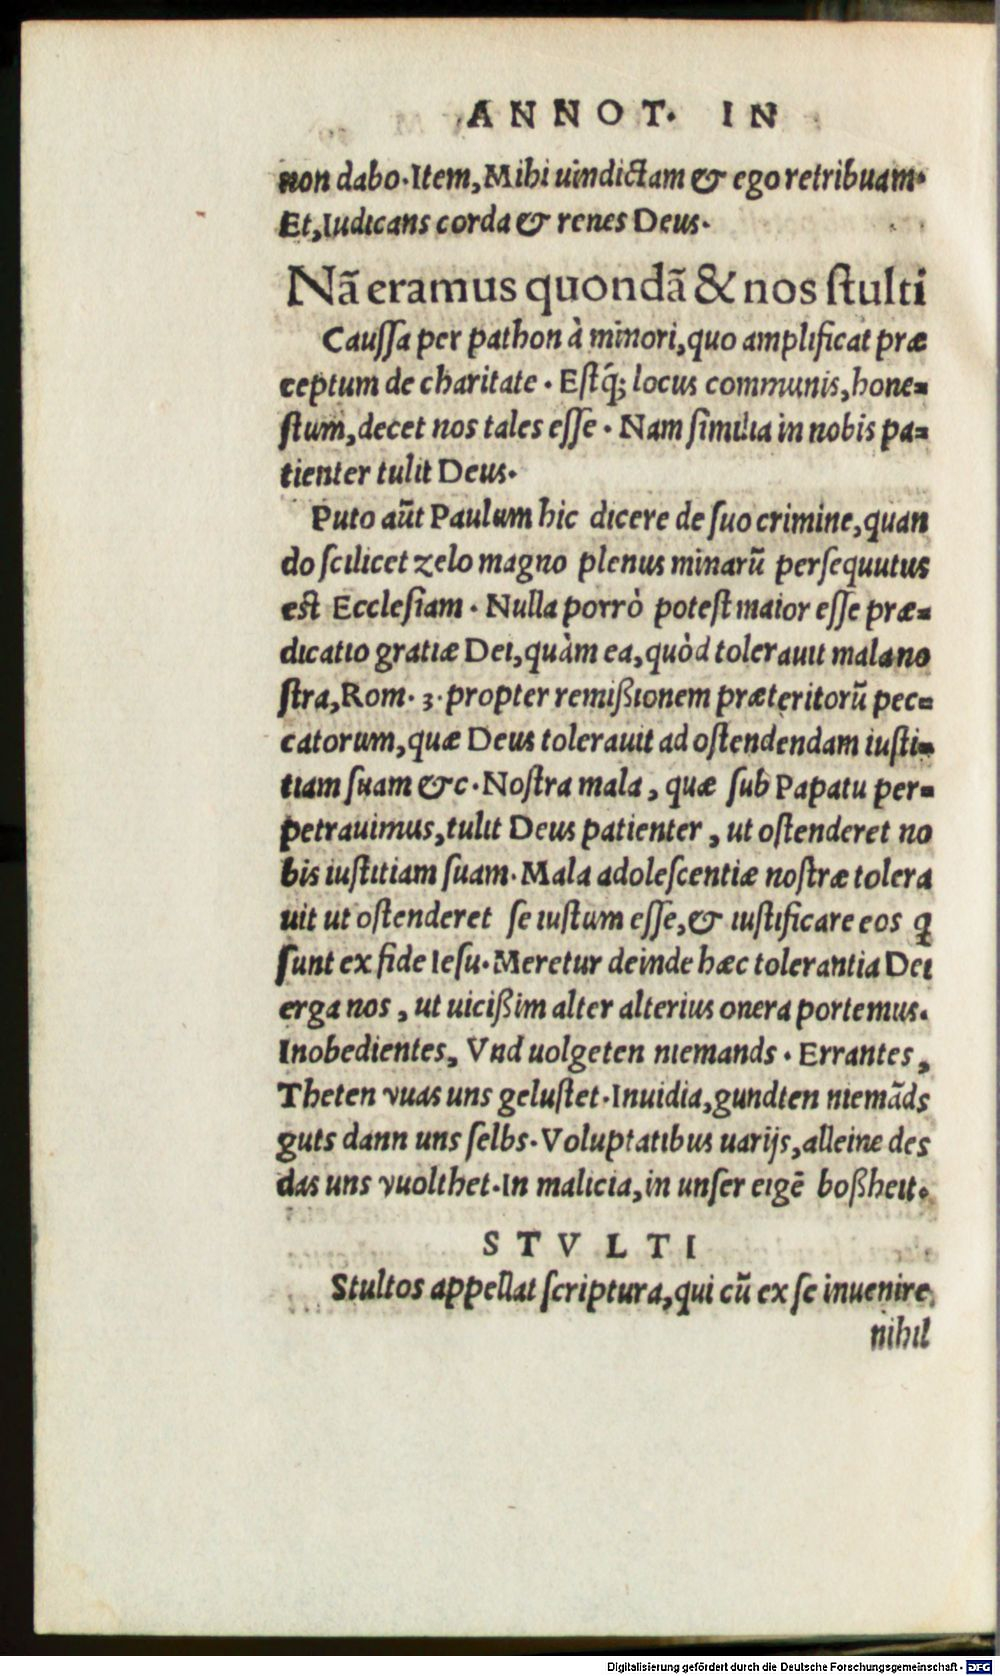 ANNOT. IN
non dabo. Item, Mihi uindictam & ego retribuam.
Et, Iudicans corda & renes Deus.
Nã eramus quondã & nos ſtulti
Cauſſa per pathon à minori, quo amplificat præ
ceptum de charitate. Eſtq́; locus communis, hone=
ſtum, decet nos tales eſſe. Nam ſimilia in nobis pa=
tienter tulit Deus.
Puto aũt Paulum hic dicere de ſuo crimine, quan
do ſcilicet zelo magno plenus minarũ perſequutus
est Eccleſiam. Nulla porrò poteſt maior eſſe præ=
dicatio gratiæ Dei, quàm ea, quòd tolerauit mala no
ſtra, Rom. 3. propter remiſſionem præteritorũ pec=
catorum, quæ Deus tolerauit ad oſtendendam iuſti=
tiam ſuam &c. Noſtra mala, quæ ſub Papatu per=
petrauimus, tulit Deus patienter, ut oſtenderet no
bis iuſtitiam ſuam. Mala adoleſcentiæ noſtræ tolera
uit ut oſtenderet ſe iuſtum eſſe, & iuſtificare eos ꝗ
ſunt ex fide Ieſu. Meretur deinde hæc tolerantia Dei
erga nos, ut uiciſſim alter alterius onera portemus.
Inobedientes, Vnd uolgeten niemands. Errantes,
Theten vuas uns geluſtet. Inuidia, gundten niemãds
guts dann uns ſelbs. Voluptatibus uarijs, alleine des
das uns vuolthet. In malicia, in unſer eigẽ boßheit.
STVLTI
Stultos appellat ſcriptura, qui cũ ex ſe inuenire
nihil
Digitalisierung gefördert durch die Deutsche Forschungsgemeinschaft - DFG